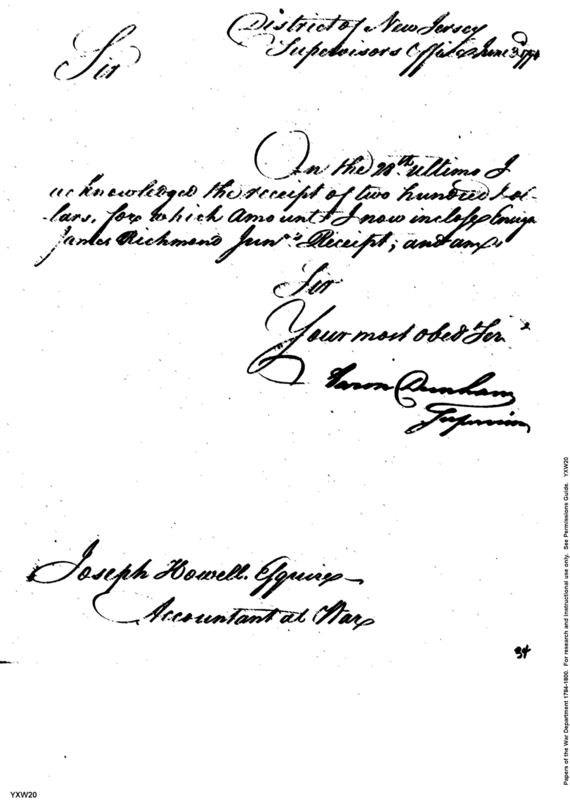 District of New Jersey
Supervisors Office June 3d 1794
Sir
On the 28th. ultimo I
acknowledged the receipt of two hundred dol-
lars, for which Amount I now inclose Ensign
James Richmond Junrs. Receipt; and am
Sir
Your most obed Sert
Aaron Dunham
Supervisor
Joseph Howell. Esquire
Accountant at War
34
Papers of the War Department 1784-1800. For research and instructional use only. See Permissions Guide. YXW20
YXW20